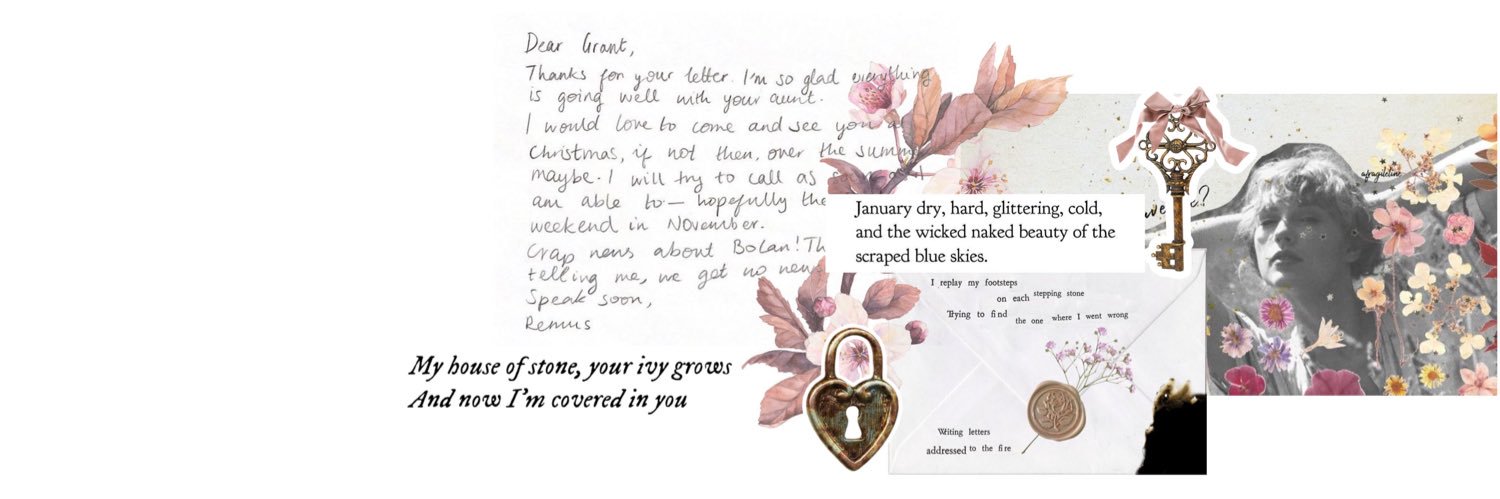 Dear Grant,
Thanks for your letter. I'm so glad everything
is going well with your aunt.
I would love to come and see you
Christmas, if not then, over the summ
maybe. I will try to call as
am able to — hopefully the
weekend in November.
Crap news about Bolan! Th
telling me, we get no new
Speak soon,
Remus
My house of stone, your ivy grows
And now I'm covered in you
January dry, hard, glittering, cold,
and the wicked naked beauty of the
scraped blue skies.
I replay my footsteps
on each stepping stone
Trying to find
the one where I went wrong
Writing letters
addressed to the fire
afragileline